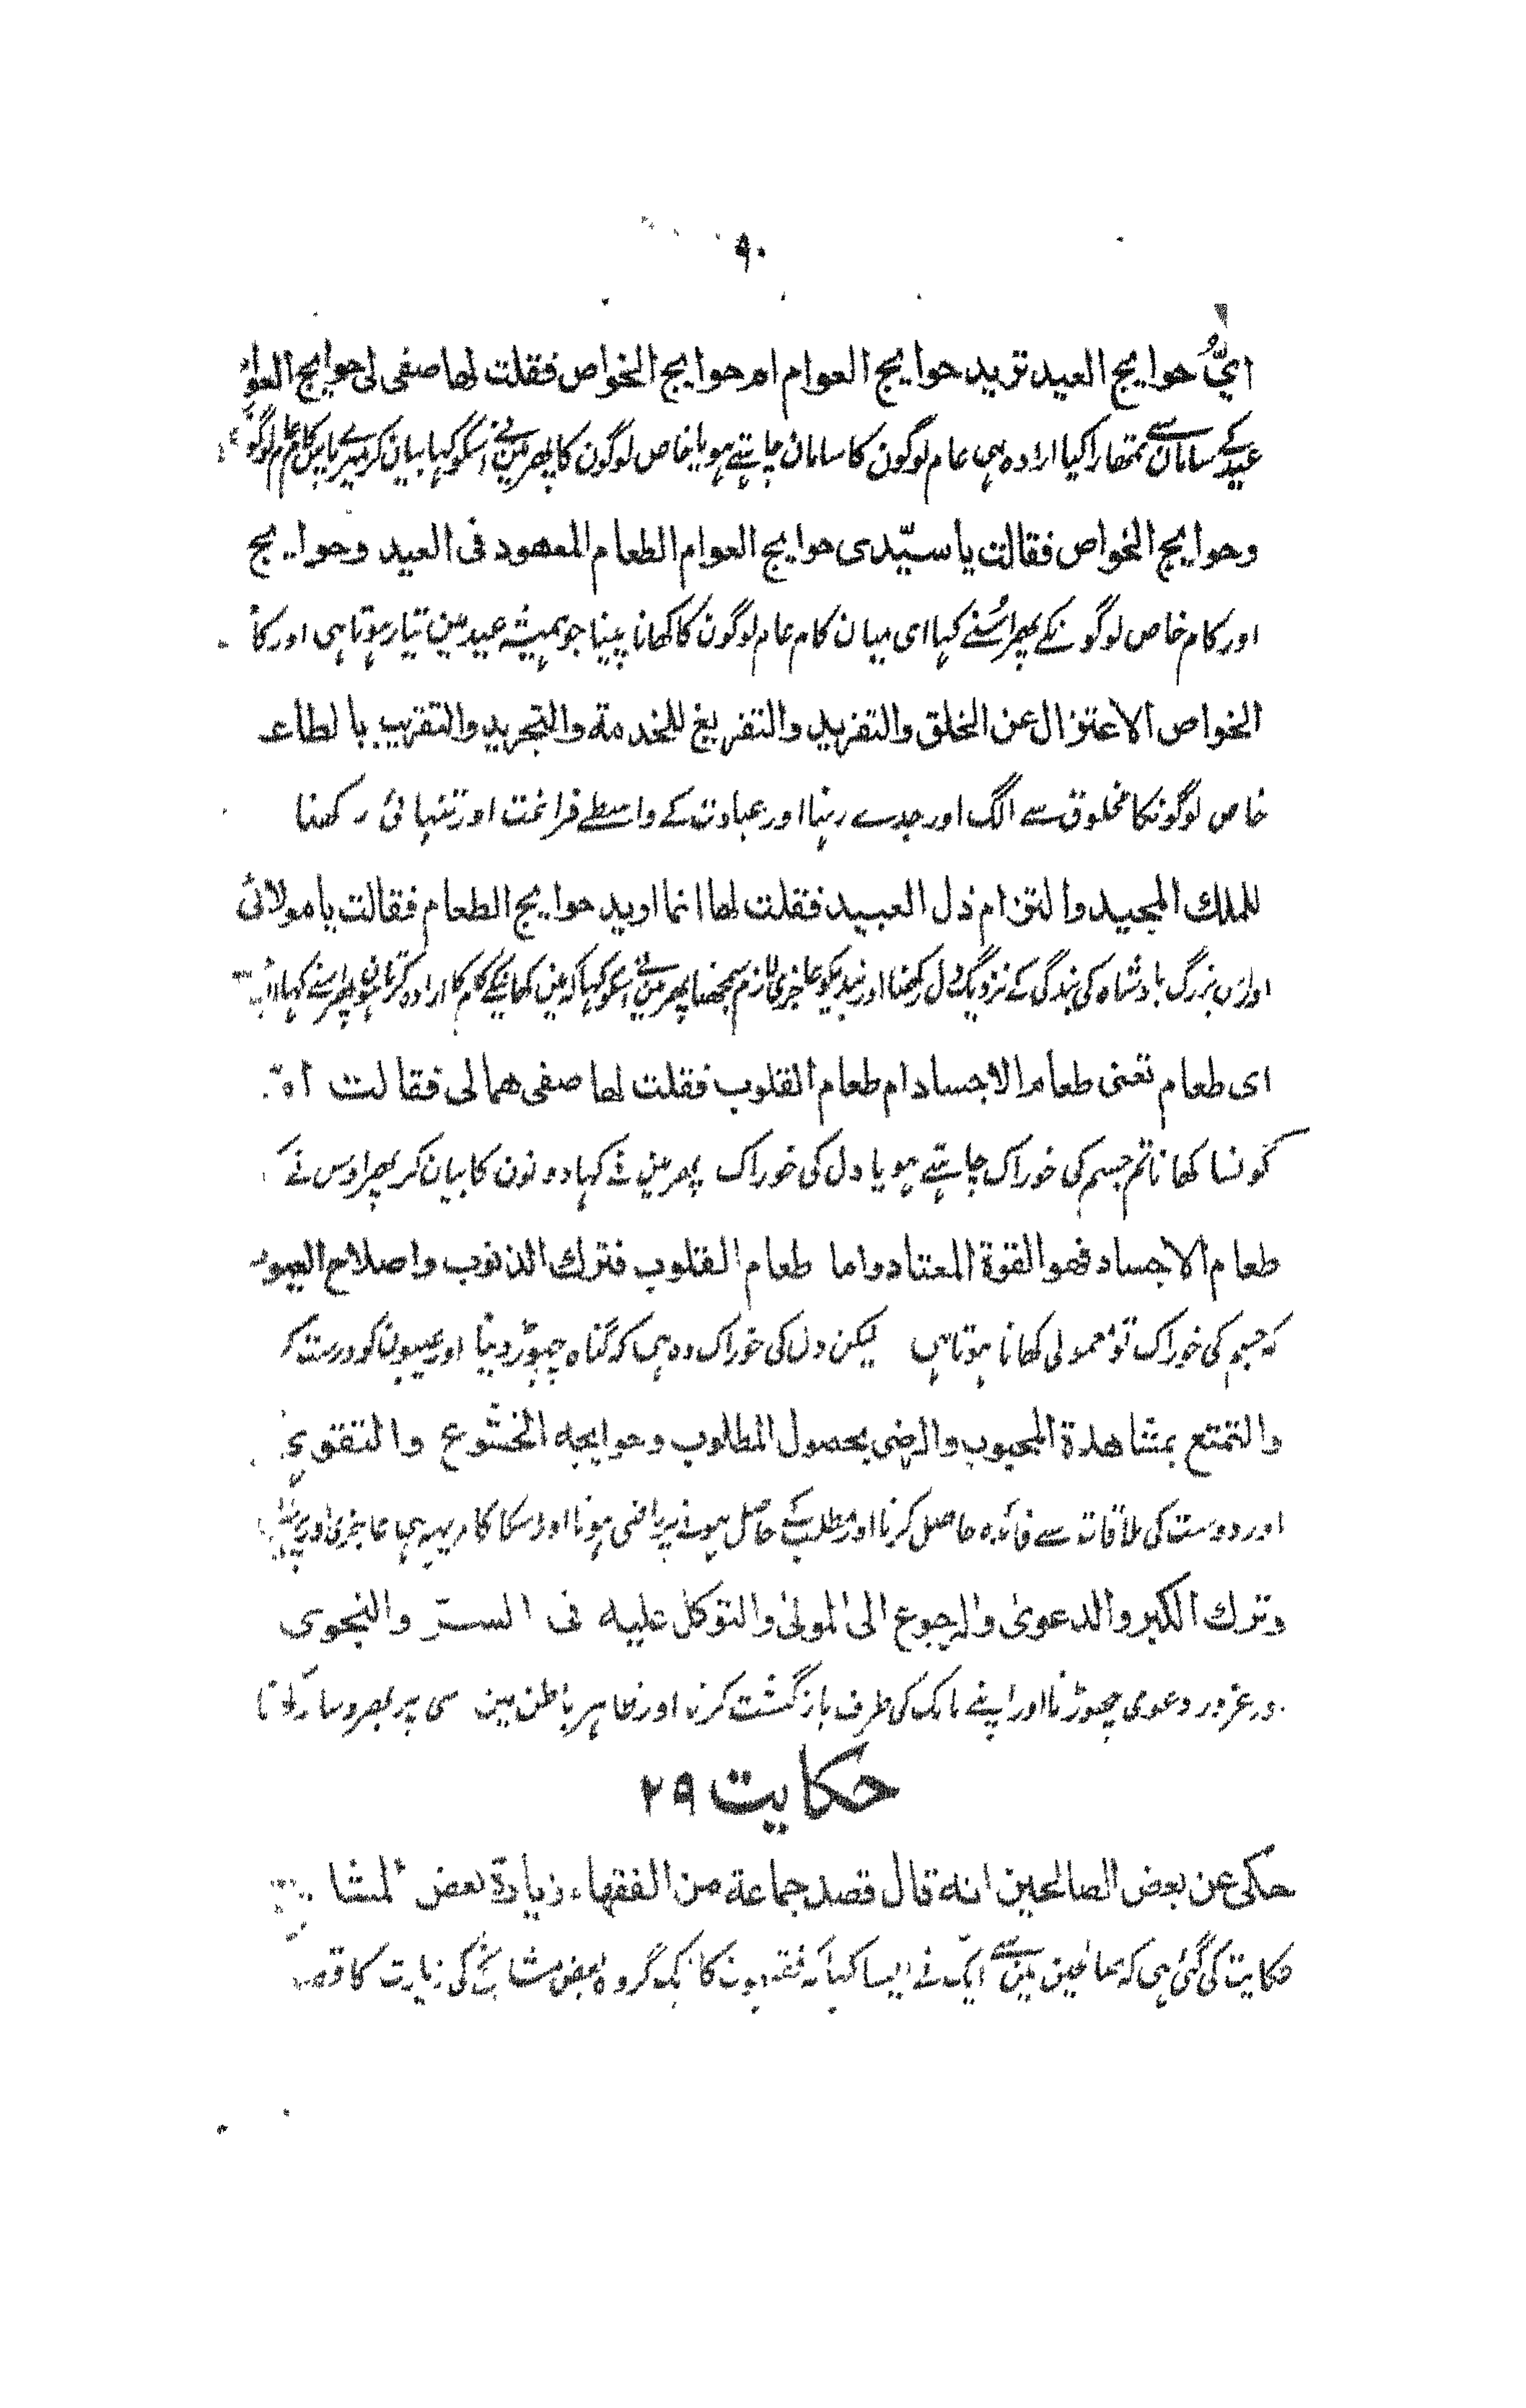 ٩٠
ایُّ حوایج العید ترید حوایج العوام ام حوایج الخواص فقلت لھا صفی لی حوایج العوا
عید کے سامان سے تمھارا کیا ارادہ ہی عام لوگون کا سامان چاہتے ہو یا خاص لوگون کا پھر مین نے اسکو کہا بیان کر میرے پاس کام عام لوگو
وحوایج الخواص فقالت یا سیّدی حوایج العوام الطعام المعھود فی العید وحوایج
اور کام خاص لوگونکے پھر اُسنے کہا ای میان کام عام لوگون کا کھانا پینا جو ہمیشہ عید مین تیار ہوتا ہی اور کا
الخواص الاعتزال عن الخلق والتفرید والتفریغ للخدمة والتجرید والتقریب بالطاعـ
خاص لوگونکا مخلوق سے الگ اور جدے رہنا اور عبادت کے واسطے فراغت اور تنہائی رکھنا
للملك المجید والتزام ذل العبید فقلت لھا انما ارید حوایج الطعام فقالت یا مولائی
اور اس بزرگ بادشاہ کی بندگی کے نزدیک دل رکھنا اور بندیکو عاجزی لازم سمجھنا پھر مین نے اسکو کہا کہ مین کھانیکے کام کا ارادہ کرتا ہون پھر اسنے کہا
ای طعام تعنی طعام الاجساد ام طعام القلوب فقلت لھا صفی ھما لی فقالت
کونسا کھانا تم جسم کی خوراک چاہتے ہو یا دل کی خوراک پھر مین نے کہا دونون کا بیان کر پھر اوس نے
طعام الاجساد فھو القوة المعتاد واما طعام القلوب فترك الذنوب واصلاح العیو
کہ جسم کی خوراک تو معمولی کھانا ہوتا ہی لیکن دل کی خوراک وہ ہی کہ گناہ چھوڑ دینا اور عیبون کو درست کر
والتمتع بمشاھدة المحبوب والرضی بحصول المطلوب وحوایجه الخشوع والتقوی
اور دوست کی ملاقات سے فائدہ حاصل کرنا اور مطلب کے حاصل ہونے پر راضی ہونا اور اسکا کام یہہ ہی عاجزی اور
وترك الکبر والدعوی والرجوع الی المولی والتوکل علیه فی السرّ والنجوی
ور غرور دعوی چھوڑنا اور اپنے مالک کی طرف بازگشت کرنا اور ظاہر باطن مین سی پر بھروسا رکھنا
حکایت ٢٩
حکی عن بعض الصالحین انه قال قصد جماعة من الفقهاء زیارة بعض المشا
حکایت کی گئی ہی کہ صالحین مین سے ایک نے ایسا کہا کہ فقیہون کا ایک گروہ بعض مشائخ کی زیارت کا قصـ